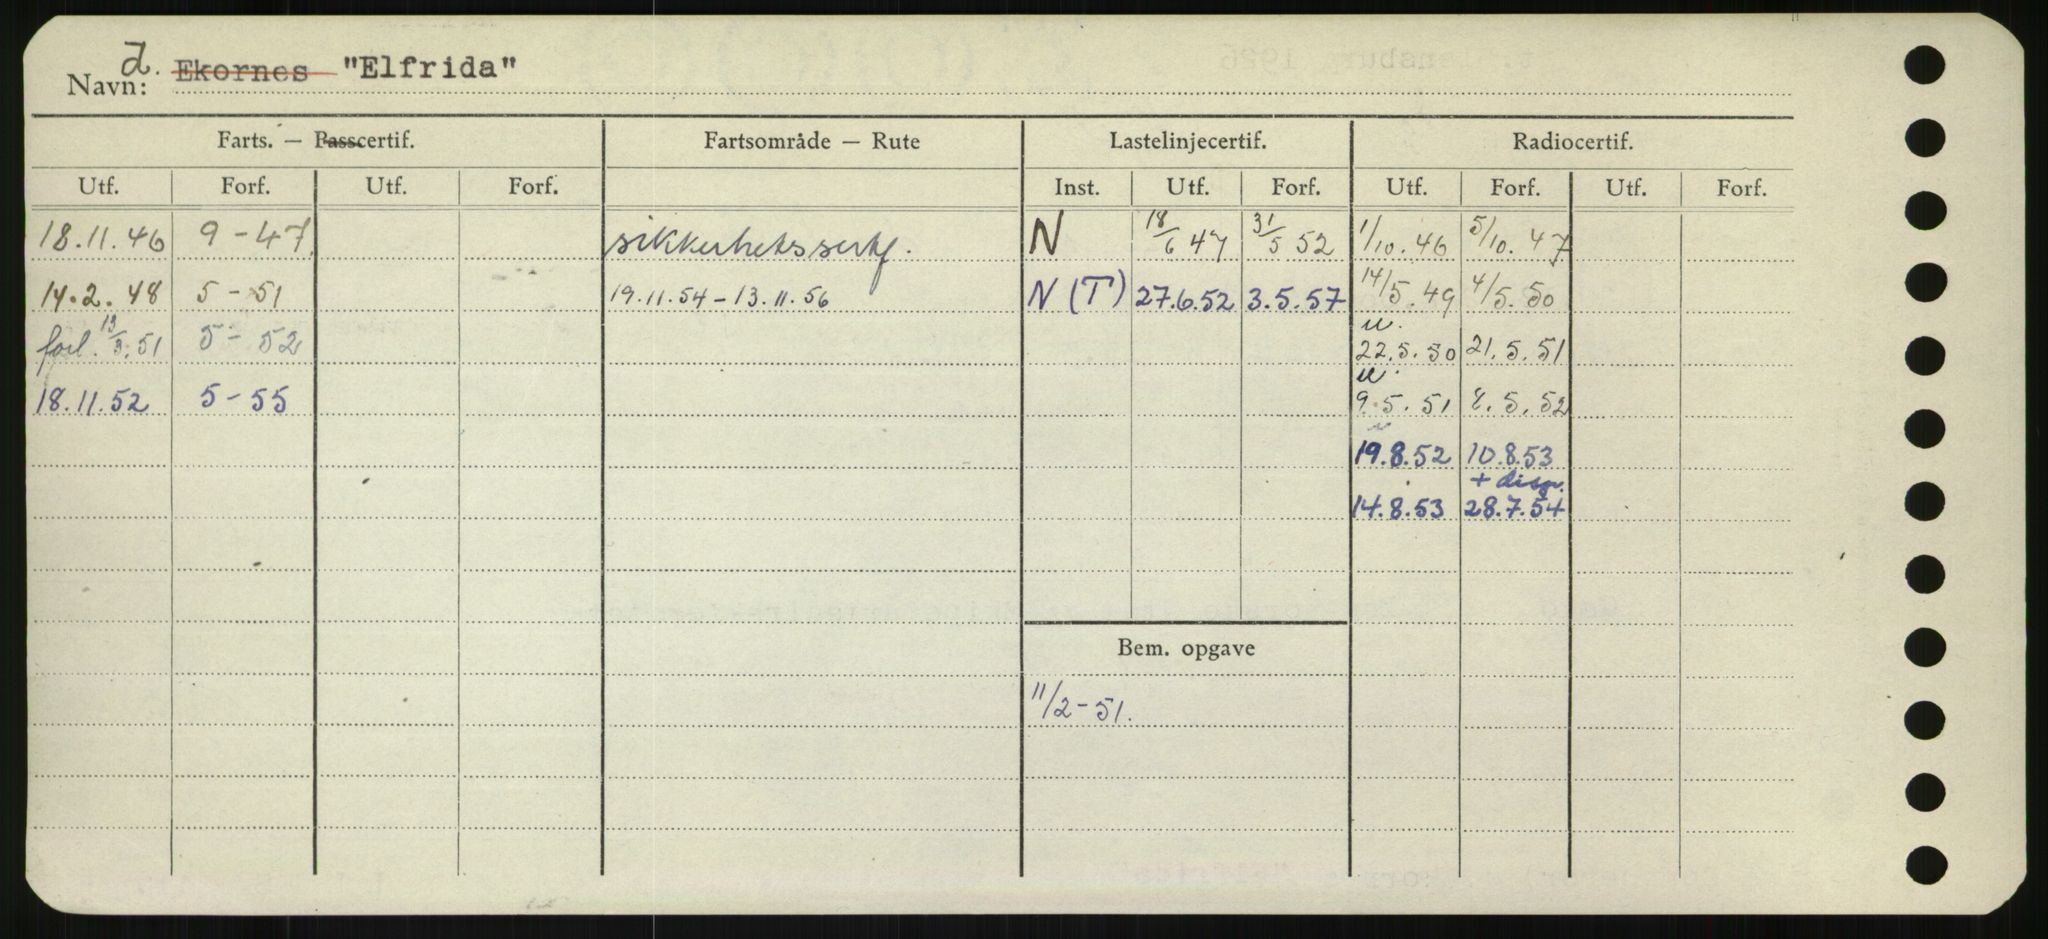 d.
Navn: Ekornes "Elfrida"
Farts. — Passcertif. Fartsområde — Rute Lastelinjecertif. Radiocertif.
Utf. Forf. Utf. Forf. Inst. Utf. Forf. Utf. Forf. Utf. Forf.
18.11.46 9-47. sikkerhetssertf. N 18/6 47 31/5 52 1/10. 46 5/10. 47
14.2.48 5-51 19.11.54-13.11.56 N (T) 27.6.52 3.5.57 14/5.49 4/5.50
forl. 13/3.51 5-52 22.5.50 21.5.51
18.11.52 5-55 9.5.51 8.5.52
19.8.52 10.8.53
+ disp.
14.8.53 28.7.54
Bem. opgave
11/2-51.